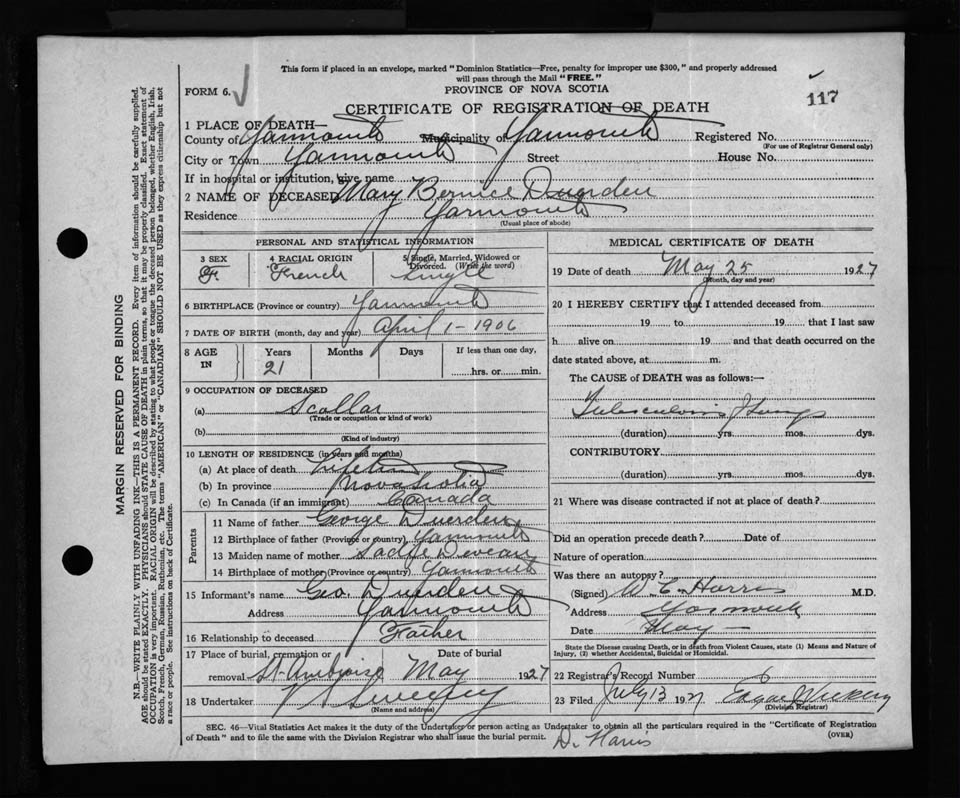 This form if placed in an envelope, marked "Dominion Statistics—Free, penalty for improper use $300," and properly addressed
will pass through the Mail "FREE."
FORM 6.
PROVINCE OF NOVA SCOTIA
117
CERTIFICATE OF REGISTRATION OF DEATH
1 PLACE OF DEATH—
County of Yarmouth Municipality of Yarmouth Registered No.
(For use of Registrar General only)
City or Town Yarmouth Street House No.
If in hospital or institution, give name
2 NAME OF DECEASED Mary Bernice Duerden
Residence Yarmouth
(Usual place of abode)
PERSONAL AND STATISTICAL INFORMATION
3 SEX 4 RACIAL ORIGIN 5 Single, Married, Widowed or
Divorced. (Write the word)
F French Single
6 BIRTHPLACE (Province or country) Yarmouth
7 DATE OF BIRTH (month, day and year) April 1 - 1906
8 AGE IN Years Months Days If less than one day,
21 hrs. or min.
9 OCCUPATION OF DECEASED
(a) Scollar
(Trade or occupation or kind of work)
(b)
(Kind of industry)
10 LENGTH OF RESIDENCE (in years and months)
(a) At place of death
(b) In province Nova Scotia
(c) In Canada (if an immigrant) Canada
Parents
11 Name of father George Duerden
12 Birthplace of father (Province or country) Yarmouth
13 Maiden name of mother Sadye Deveau
14 Birthplace of mother (Province or country) Yarmouth
15 Informant's name Geo. Duerden
Address Yarmouth
16 Relationship to deceased Father
17 Place of burial, cremation or Date of burial
removal St. Ambroise May 1927
18 Undertaker V S Sweeny
(Name and address)
MEDICAL CERTIFICATE OF DEATH
19 Date of death May 25 1927
(Month, day and year)
20 I HEREBY CERTIFY that I attended deceased from
19 to 19 that I last saw
h alive on 19 and that death occurred on the
date stated above, at m.
The CAUSE of DEATH was as follows:—
Tuberculosis Lungs
(duration) yrs. mos. dys.
CONTRIBUTORY
(duration) yrs. mos. dys.
21 Where was disease contracted if not at place of death?
Did an operation precede death? Date of
Nature of operation
Was there an autopsy?
(Signed) W. C. Harris M.D.
Address Yarmouth
Date May —
State the Disease causing Death, or in death from Violent Causes, state (1) Means and Nature of
Injury, (2) whether Accidental, Suicidal or Homicidal.
22 Registrar's Record Number 6
23 Filed July 13 1927 Edgar Vickery
(Division Registrar)
SEC. 46—Vital Statistics Act makes it the duty of the Undertaker or person acting as Undertaker to obtain all the particulars required in the "Certificate of Registration
of Death" and to file the same with the Division Registrar who shall issue the burial permit.
(OVER)
D. Harris
MARGIN RESERVED FOR BINDING
N.B.—WRITE PLAINLY WITH UNFADING INK—THIS IS A PERMANENT RECORD. Every item of information should be carefully supplied.
AGE should be stated EXACTLY. PHYSICIANS should STATE CAUSE OF DEATH in plain terms, so that it may be properly classified. Exact statement of
OCCUPATION is very important. RACIAL ORIGIN will be described by stating to what people or tongue the deceased person belonged, whether English, Irish,
Scotch, French, German, Russian, Ruthenian, etc. The terms "AMERICAN" or "CANADIAN" SHOULD NOT BE USED as they express citizenship but not
a race or people. See instructions on back of Certificate.